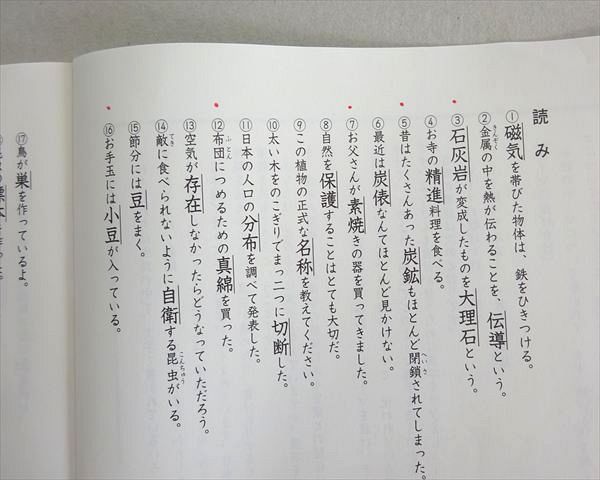 読み
①磁気を帯びた物体は、鉄をひきつける。
②金属の中を熱が伝わることを、伝導という。
きんぞく
③石灰岩が変成したものを大理石という。
④お寺の精進料理を食べる。
⑤昔はたくさんあった炭鉱もほとんど閉鎖されてしまった。
へいさ
⑥最近は炭俵なんてほとんど見かけない。
⑦お父さんが素焼きの器を買ってきました。
⑧自然を保護することはとても大切だ。
⑨この植物の正式な名称を教えてください。
⑩太い木をのこぎりでまっ二つに切断した。
⑪日本の人口の分布を調べて発表した。
⑫布団につめるための真綿を買った。
ふとん
⑬空気が存在しなかったらどうなっていただろう。
⑭敵に食べられないように自衛する昆虫がいる。
てき
こんちゅう
⑮節分には豆をまく。
⑯お手玉には小豆が入っている。
⑰鳥が巣を作っているよ。